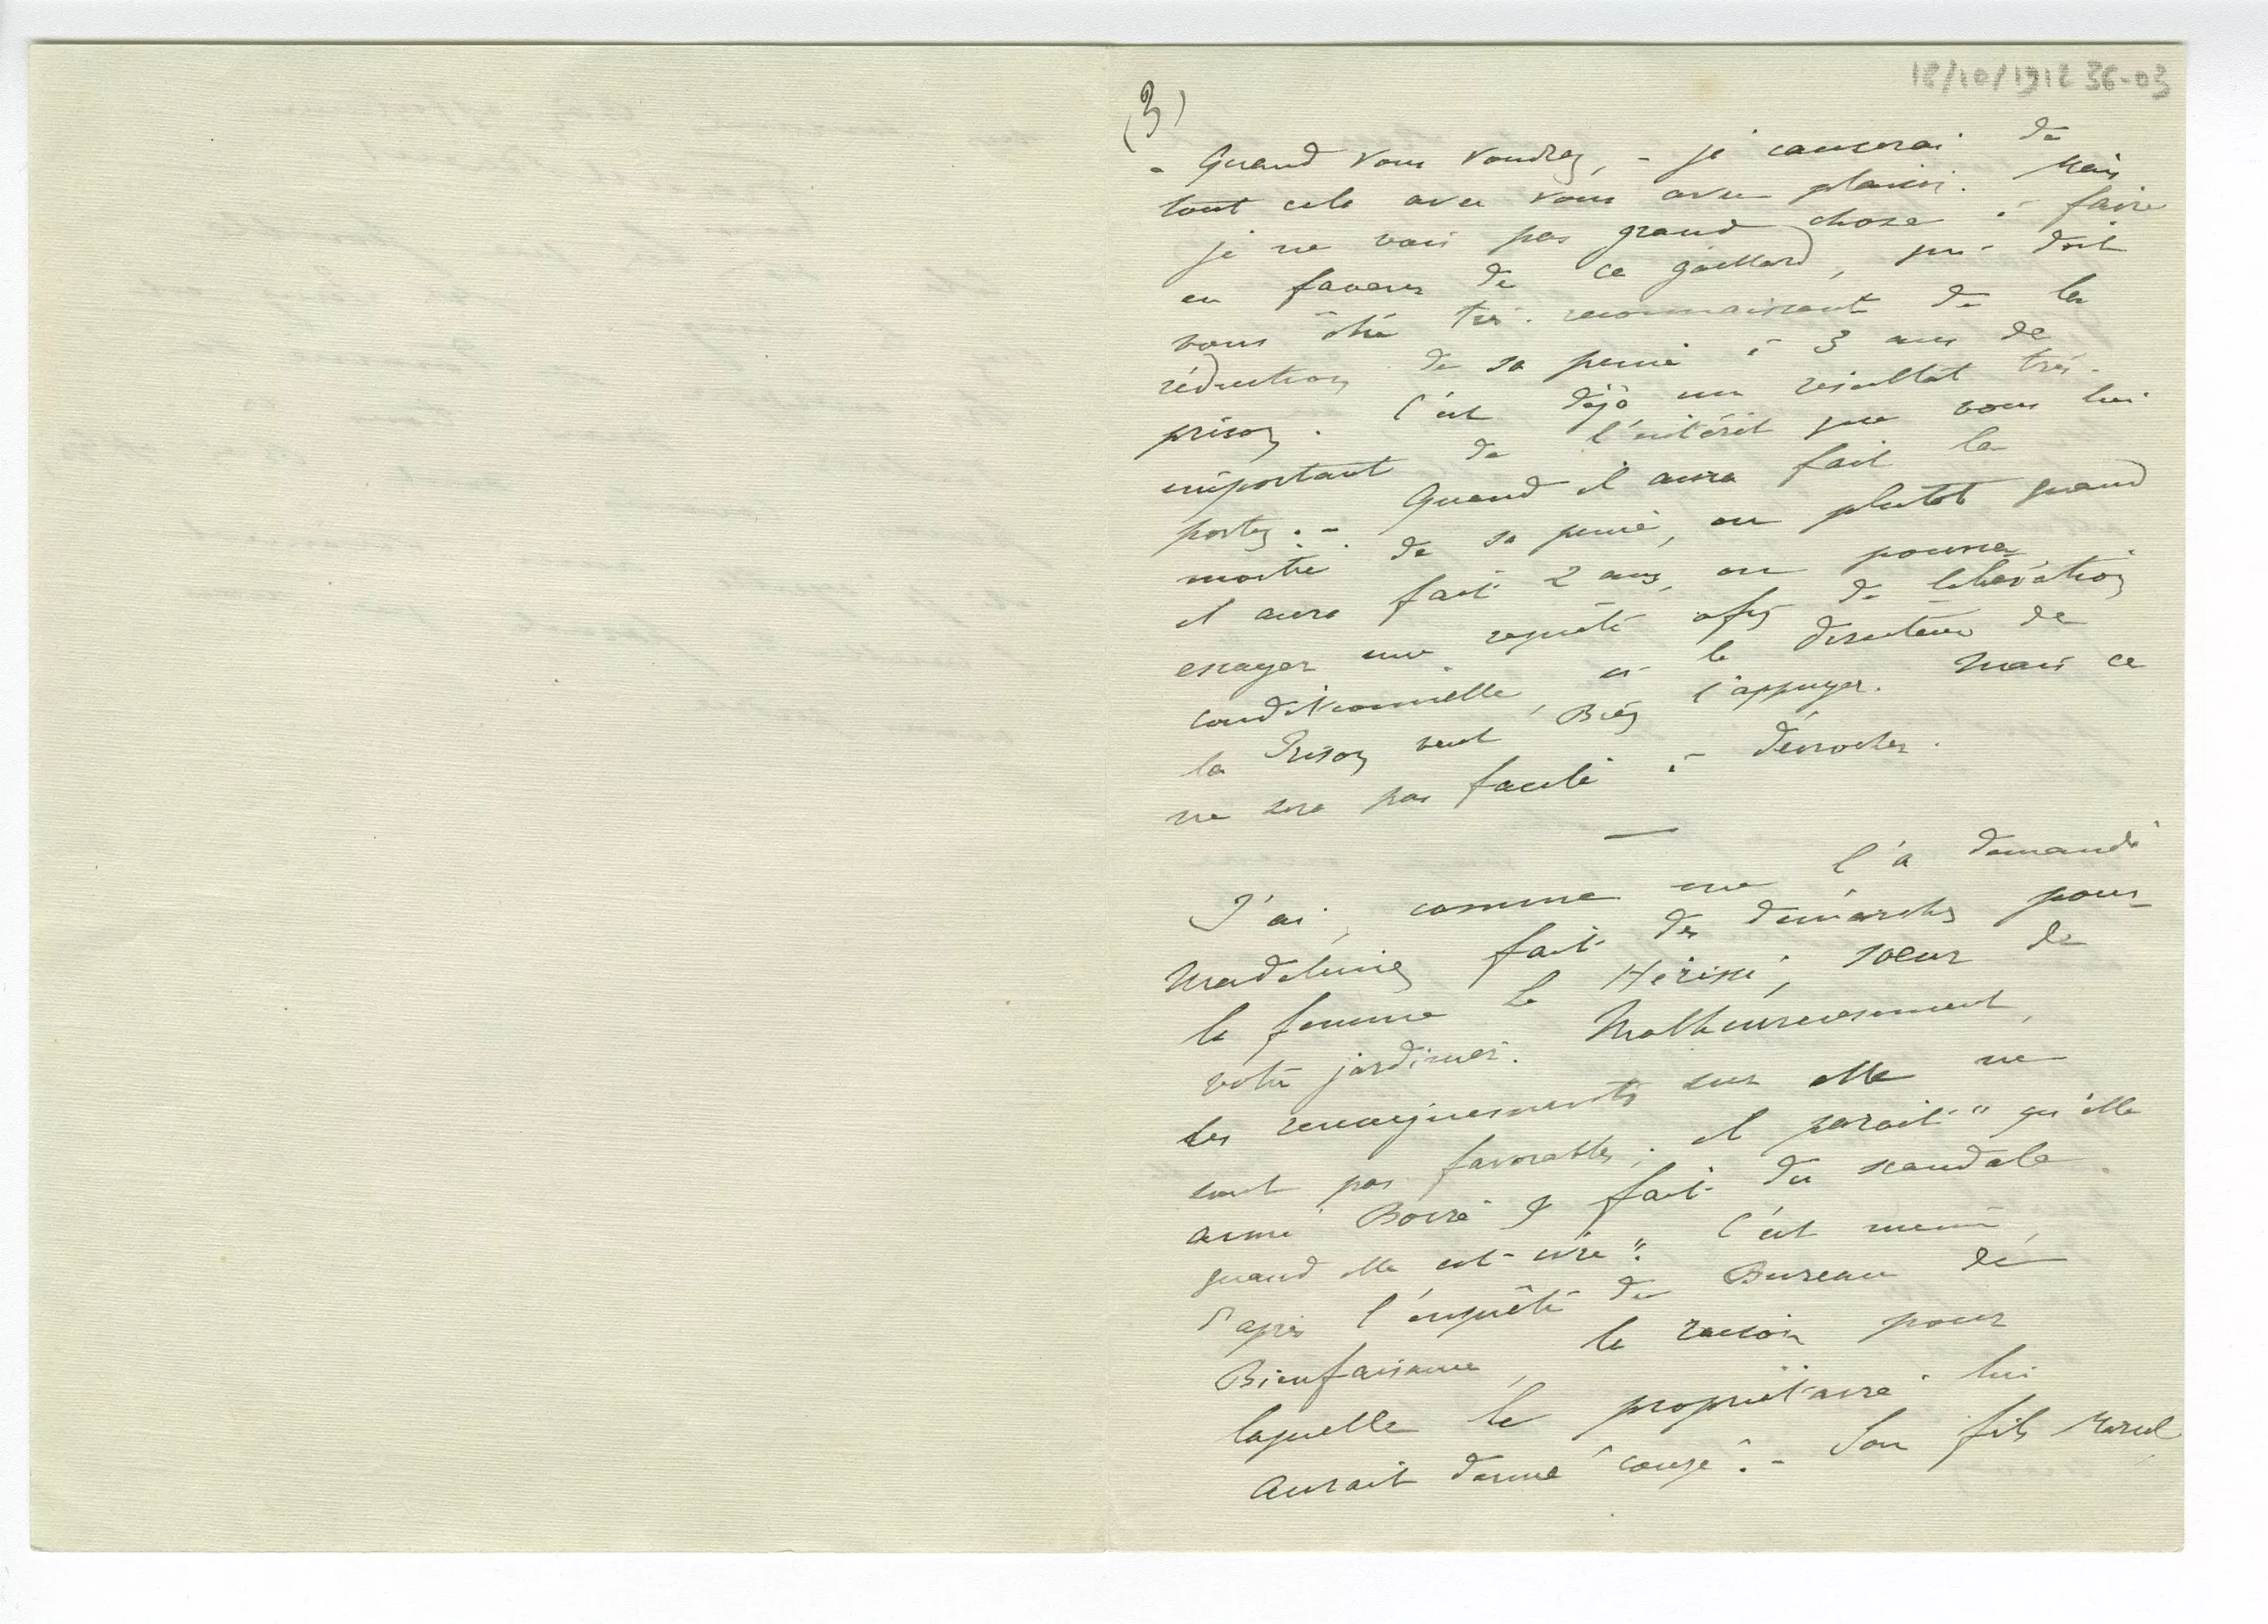 18/10/1912 36-03
(3)
- Quand vous voudrez, - je causerai de
tout cela avec vous avec plaisir. Mais
je ne vois pas grand chose à faire
en faveur de ce gaillard, qui doit
vous être très reconnaissant de la
réduction de sa peine à 3 ans de
prison. C'est déjà un résultat très
important de l'intérêt que vous lui
portez. - Quand il aura fait la
moitié de sa peine, ou plutôt quand
il aura fait 2 ans, on pourra
essayer une requête afin de libération
conditionnelle, si le directeur de
la Prison veut bien l'appuyer. Mais ce
ne sera pas facile à décrocher.
J'ai, comme me l'a demandé
Madeleine, fait des démarches pour
la femme Le Hérissé, soeur de
votre jardinier. Malheureusement,
les renseignements sur elle ne
sont pas favorables; il paraît "qu'elle
aime Boire & fait du scandale
quand elle est ivre". C'est même,
d'après l'enquête du Bureau de
Bienfaisance, la raison pour
laquelle le propriétaire lui
aurait donné congé. - Son fils Marcel